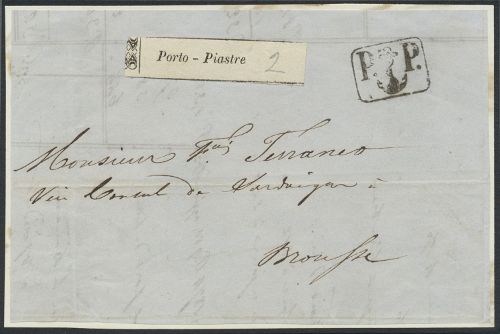 Porto - Piastre 2
P. P.
Monsieur F^çois Terraneo
Vice Consul de Sardaigne à
Brousse